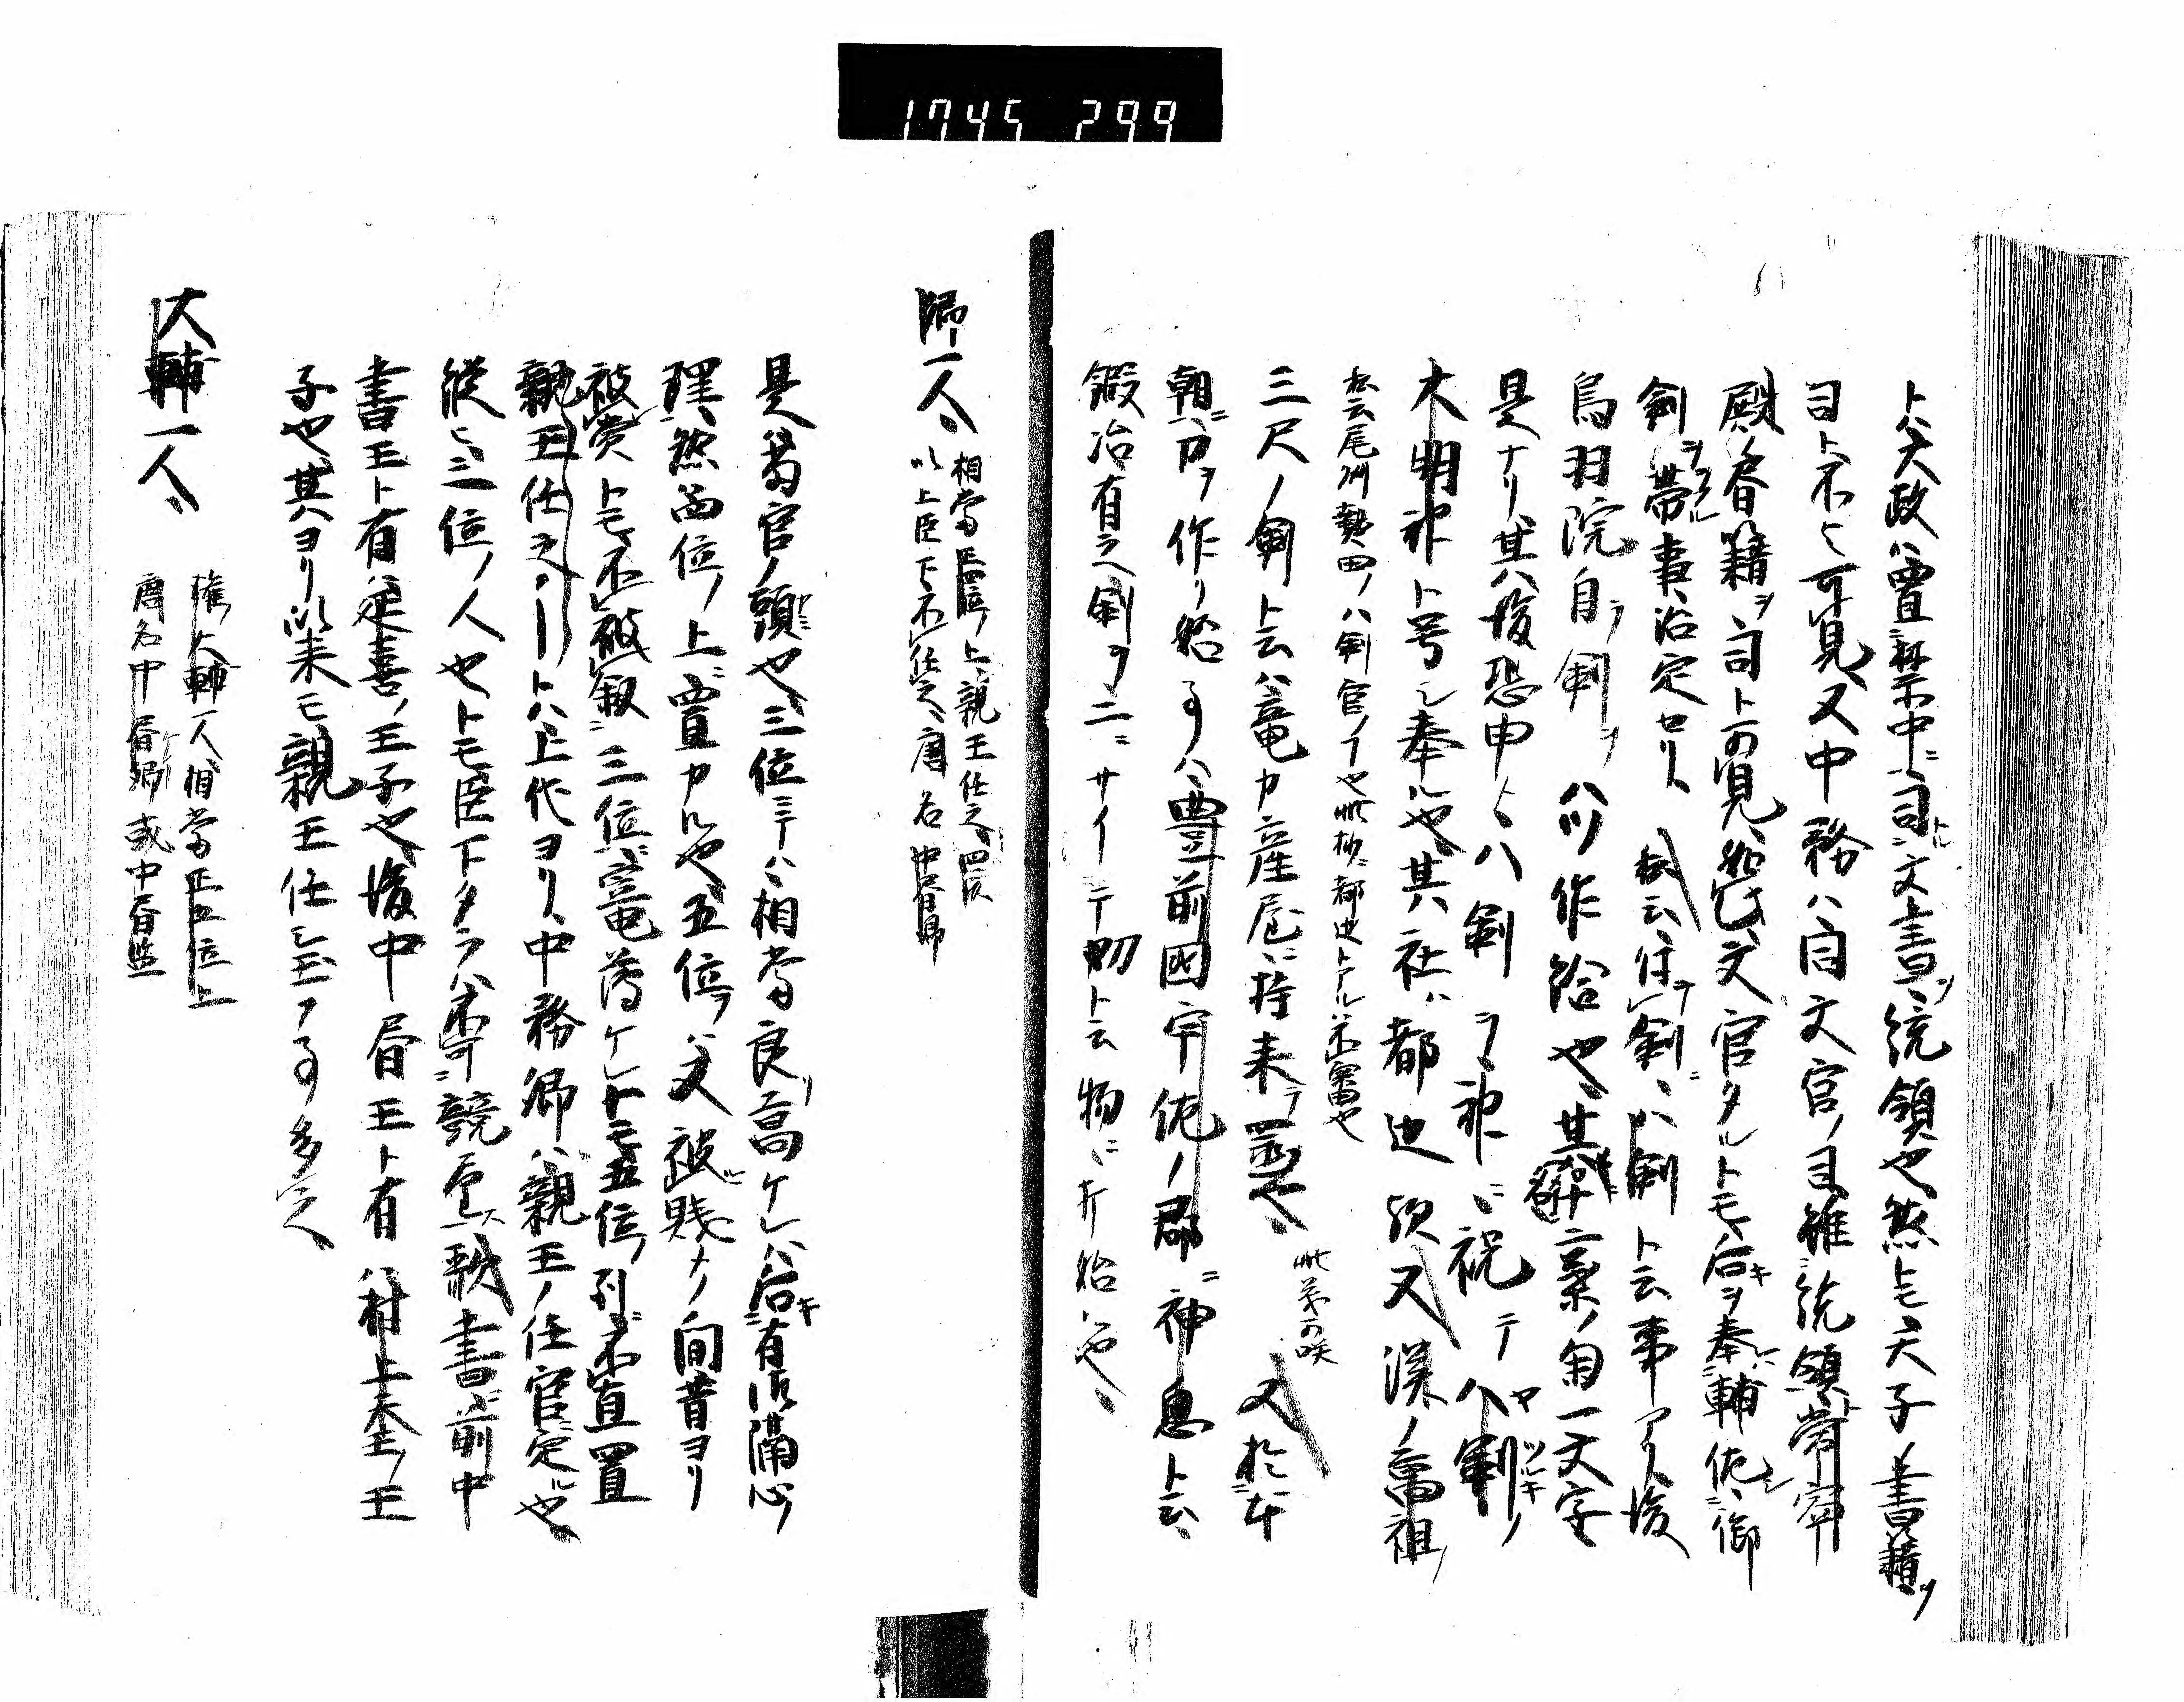 1745 299
ト八大政ハ置禁中ニ司トル文書ヲ統領也然トモ天子ノ書籍ヲ
司ト不ト可見又中務ハ自文官ノ司雖統領常寧
殿ノ書籍ヲ司ト可見文官タルトモ后キヲ奉輔佐シ御
剣ヲ帯事治定セリ 私云任剣ニハ剣ト云事アリ後
鳥羽院自ラ剣ヲ八ツ作給也其銘ニ菊一文字
是ナリ其後恐申トテ八剣ヲ神ニ祝テ八剣ノ
大明神ト号シ奉ル也其社ハ都辺歟又漢ノ高祖ノ
私云尾州熱田ノ八剣官ノ了也此抄ニ都辺トアル不審也
三尺ノ剣ト云ハ竜カ産屋ニ持来テ置也 此義可咲 又於本
朝ニ刀ヲ作リ始ル事ハ豊前國宇佐ノ郡ニ神息ト云
鍛冶有之剣ヲ二ニサイテ刀ト云物ニ打始ル也
卿一人 相當正四位上親王任之四品
以上臣下不任之唐名中書卿
是ハ當官ノ頭也三位ニテハ相當ノ良高ケレハ后キ有御隔心
理然而四位ノ上ニ置カル也五位ハ又被賤ナリ間昔ヨリ
被賞トモ不被叙三位ニ竜薄ケレトモ五位ノ列ニ不置置
親王任之トハ上代ヨリ中務卿ハ親王ノ任官ニ定ル也
縦ヒ三位ノ人也トモ臣下タラハ不可競望歟書ニ前中
書王ト有ハ延喜ノ王子也後中書王ト有ハ村上天王ノ王
子也其ヨリ以来モ親王任シ玉フ事多之
大輔一人 権大輔一人相當正五位上
唐名中書卿或中書監